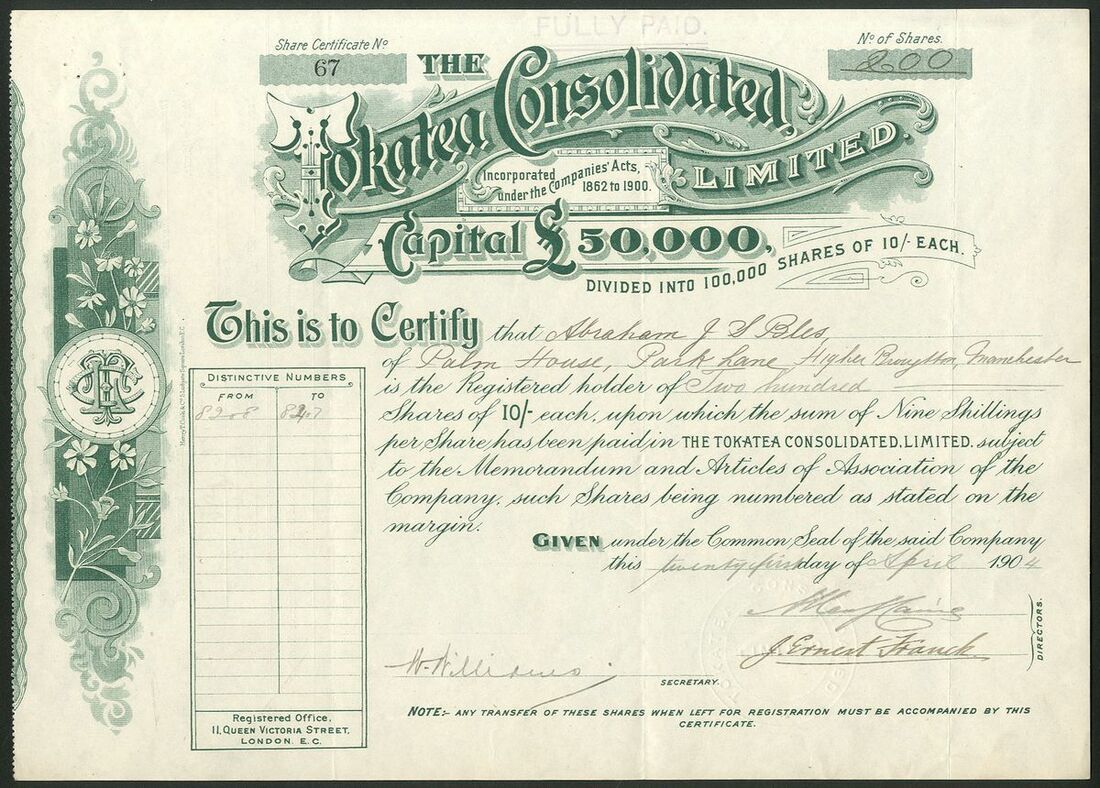 FULLY PAID.
Share Certificate No
67
No of Shares.
200
THE
Tokatea Consolidated,
LIMITED.
Incorporated
under the Companies' Acts,
1862 to 1900.
Capital £50,000,
DIVIDED INTO 100,000 SHARES OF 10/- EACH.
This is to Certify that Abraham J S Bles,
of Palm House, Park Lane, Higher Broughton, Manchester
is the Registered holder of Two hundred
Shares of 10/- each, upon which the sum of Nine Shillings
per Share, has been paid in THE TOKATEA CONSOLIDATED, LIMITED. subject
to the Memorandum and Articles of Association of the
Company, such Shares being numbered as stated on the
margin.
GIVEN under the Common Seal of the said Company
this twenty first day of April 1904
DISTINCTIVE NUMBERS
FROM TO
J. Ernest Franck
DIRECTORS.
W. Williams
SECRETARY.
NOTE:- ANY TRANSFER OF THESE SHARES WHEN LEFT FOR REGISTRATION MUST BE ACCOMPANIED BY THIS
CERTIFICATE.
Registered Office,
11, QUEEN VICTORIA STREET,
LONDON. E.C.